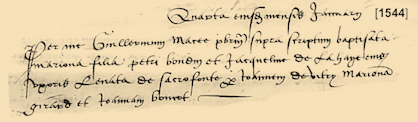 Quarta eiusdem mensis Januarii [1544]
Per me Guillermum Macee pbrum supra scriptum baptisata
mariona filia petri bondin et Jacqueline de La haye eius
uxoris Levata de sacrofonte p Joannem de vitry Mariona
girard et Joannam